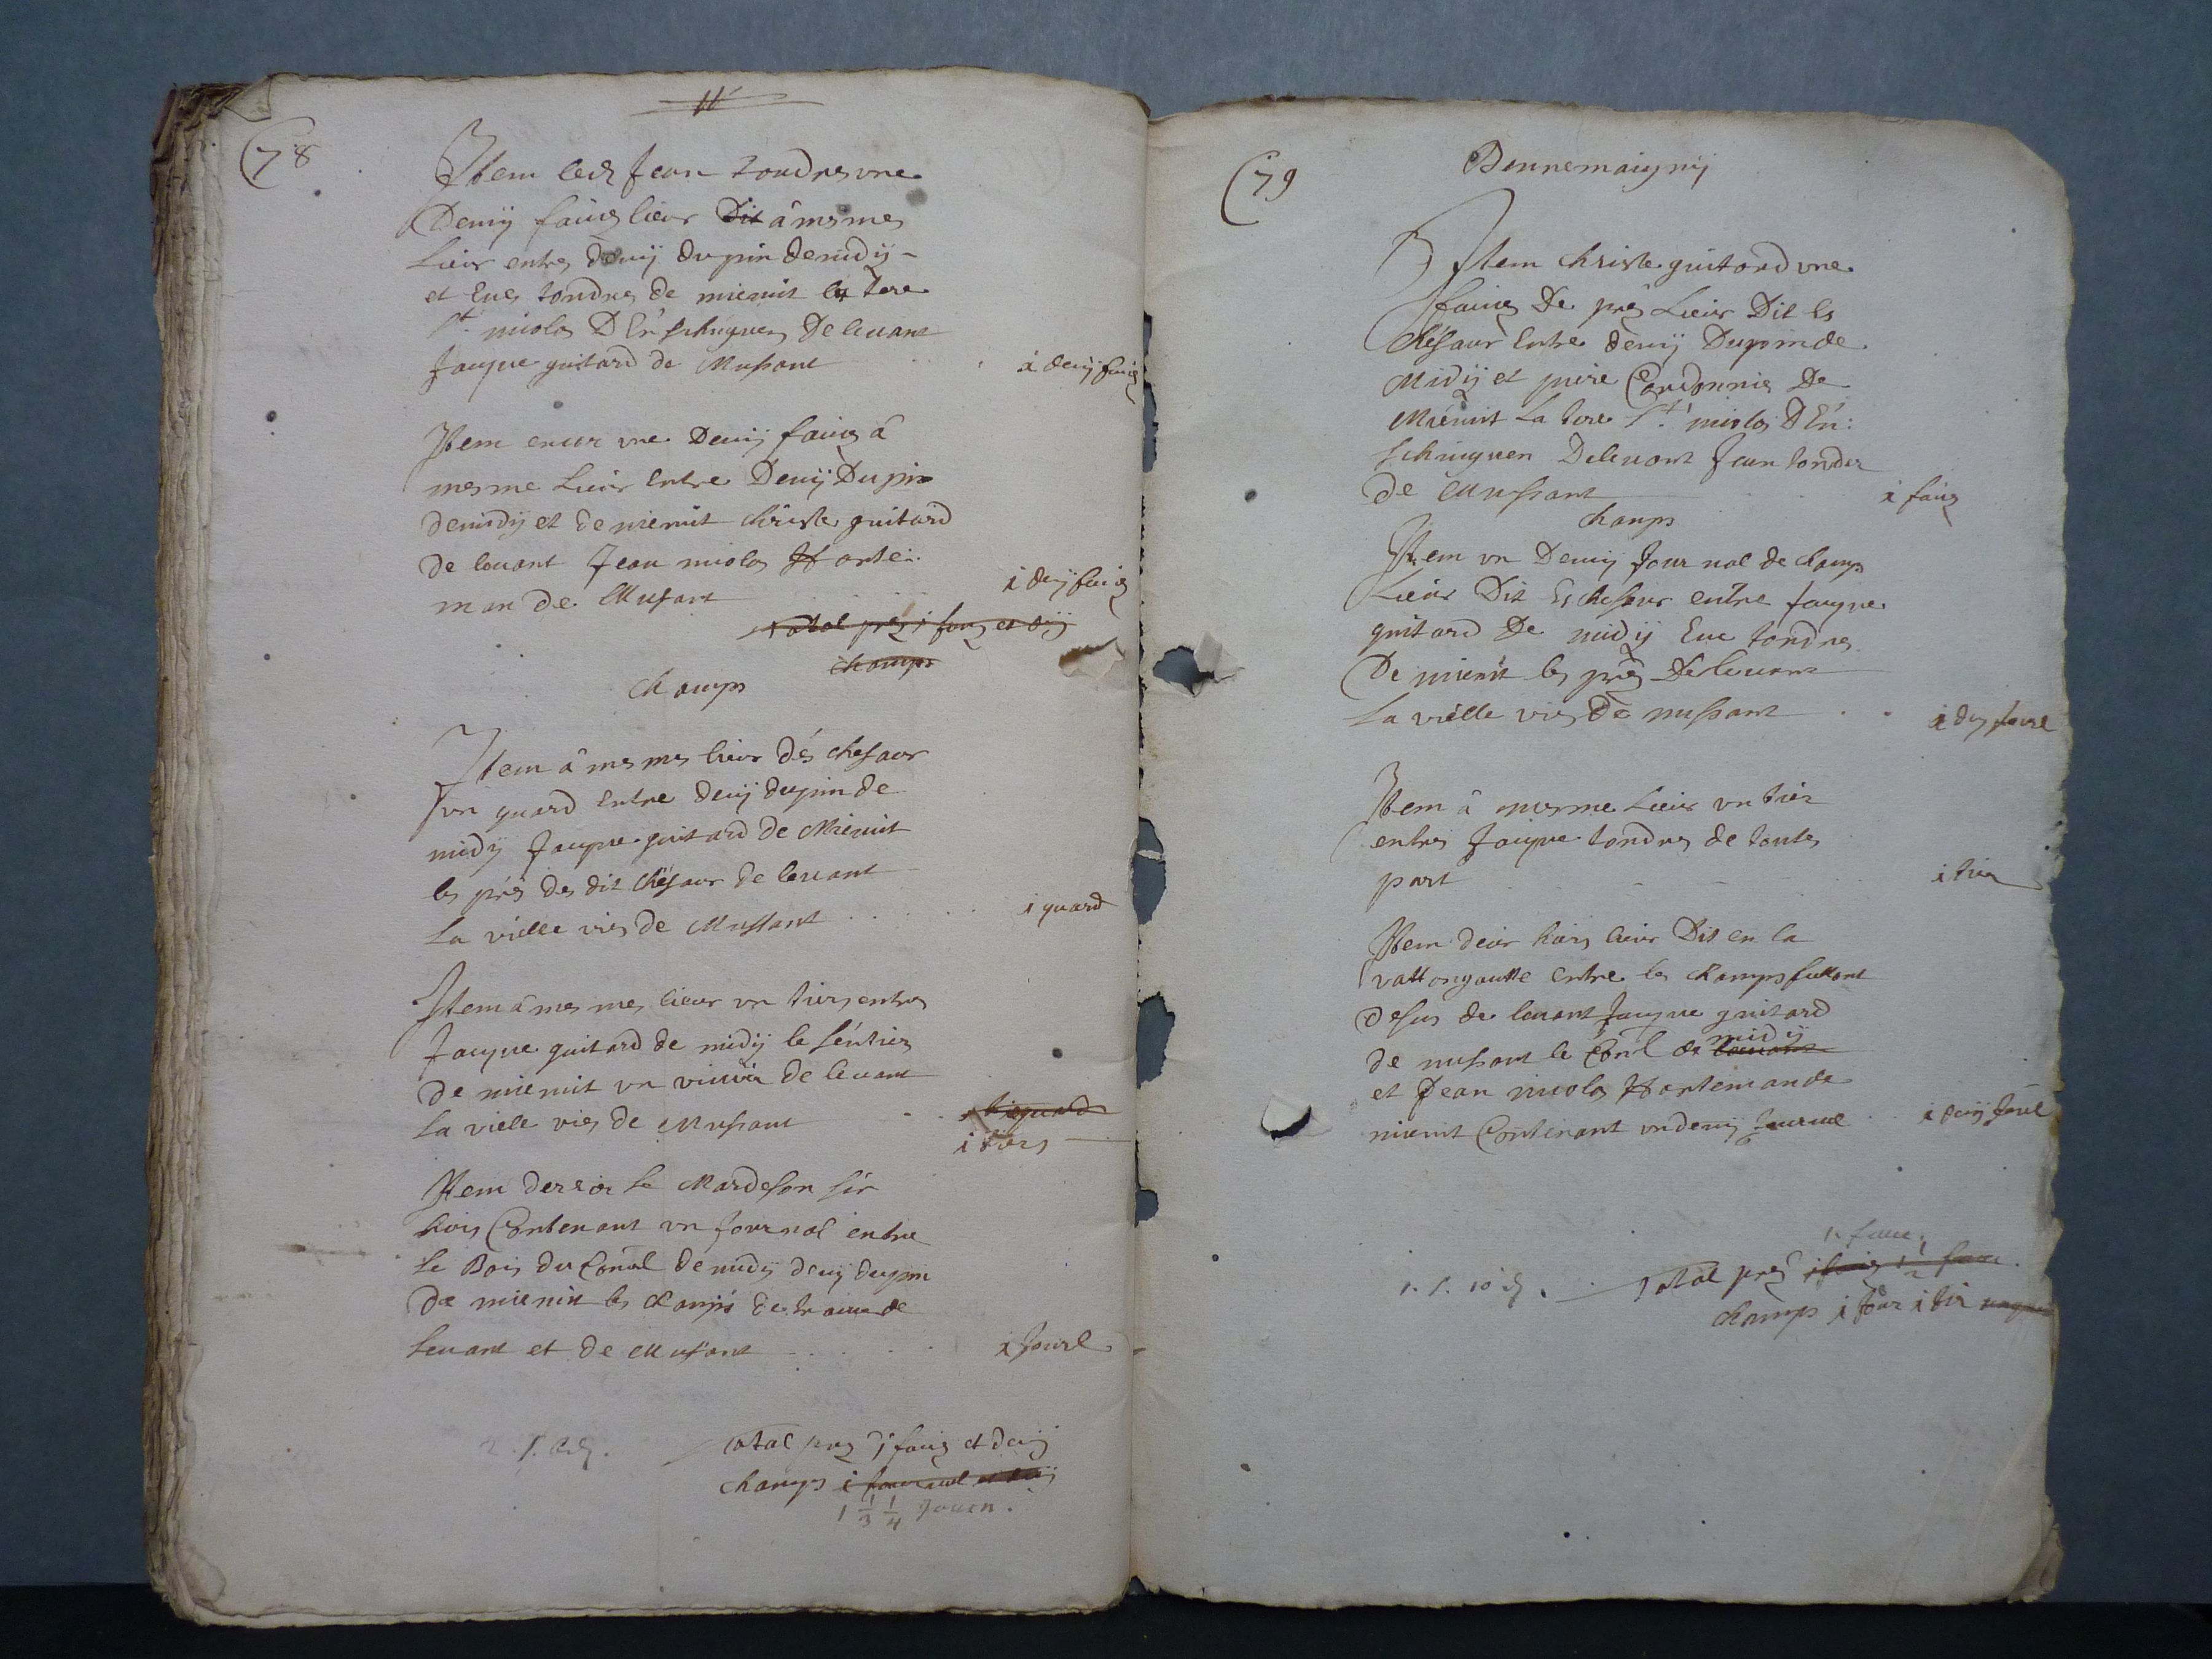 78
Item ledt Jean tondres vne
Demÿ faûcz lieur Dit â mesmes
Lieur entres demÿ dupin demidÿ -
et Eues tondres de mienuit la tere
St. nicolas D'En schinguen De leuant
Jaque guitard de Mussant . . . i demÿ faucz
Item encor vne Demÿ faucz â
mesme Lieur Entre Demÿ Dupin
demidÿ et de mienuit christe guitard
de leuant Jean nicolas Harte:
man de Mussant . . . i demÿ faucz
total prez i faucz et dÿ
champs
champs
Item â mesmes lieur dés chesaur
vn quard Entre demÿ dupin de
midÿ Jaque guitard de Mienuit
les prés des dit chésaur de leuant
La viélle vies de Mussant . . . . . i quard
Item â mesmes lieur vn tiers entres
Jaque guitard de midÿ le séntier
de mienuit vn viuvier de leuant
La vielle vies de Mussant . . i quard
i tiers
Item derrier le Mardeson sèr
hois Contenant vn Journal entre
le Bois du Conal de midÿ demÿ dupin
de mienuit les champs de traiue de
Leuant et de Mussant . . . . . i Jourl
total prez i faucz et demÿ
champs i Journal et demÿ
1 1/3 1/4 Jouen .
79
Bennemaignÿ
Item christe guitard vne
faucz De prés Lieur Dit Es
chésaur Entre demÿ Dupin de
Midÿ et piere Cordonnie De
Mienuit La tere St. nicolas D'En:
schinguen De leuant Jean tondre
de Mussant . . i faucz
champs
Item vn Demÿ Journal de champs
Lieur Dit Es chesaur entre Jaque
guitard De midÿ Eue tondres
De mienuit les prés De leuant
La viélle vies de mussant . . i dÿ Jourl
Item â mesme Lieur vn tier
entres Jaque tondres de toutes
part . . . . i tier
Item deier hais lieur Dit en la
entre les champs
desus de leuant Jaque guitard
de mussant le Conl de leuant midÿ
et Jean nicolas Harteman de
mienuit Contenant vn demÿ Journal . . i demÿ Jourl
1. fauc.
1. s. 10 d. . Total prez i faucz 1 1/2 fauc.
champs i Jour i tier